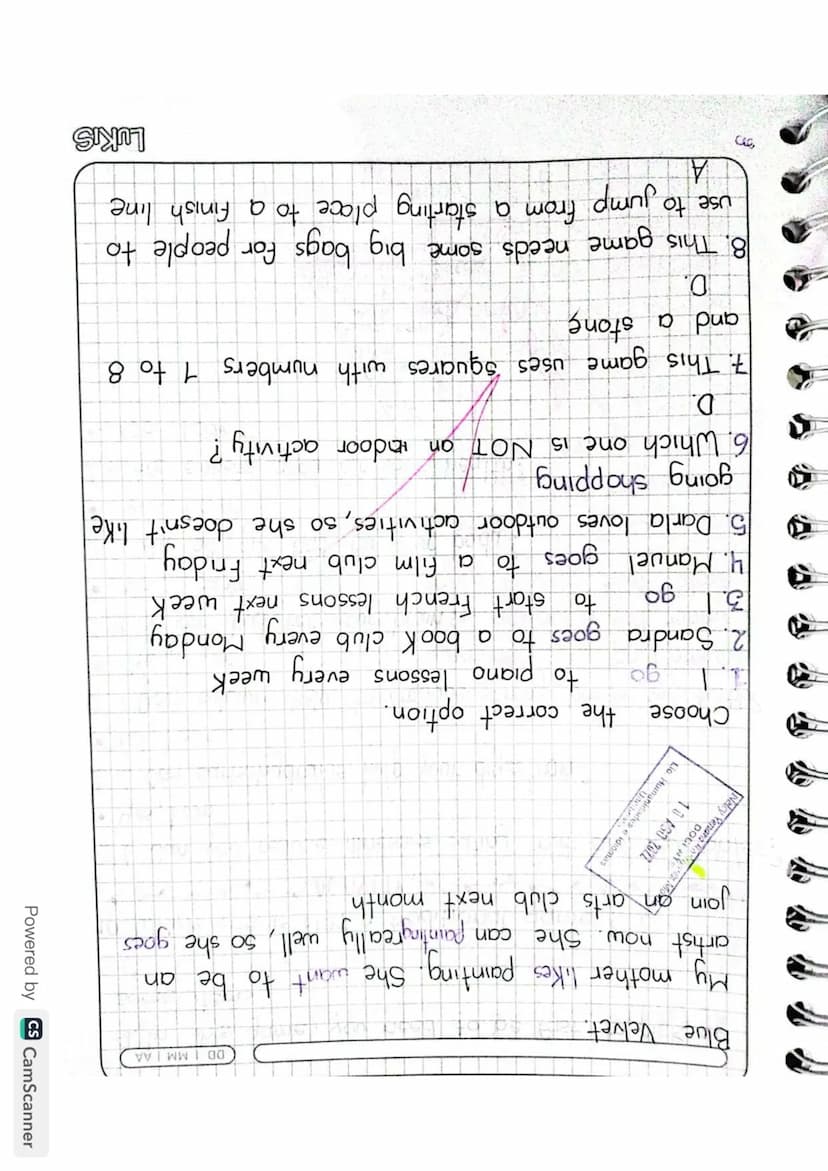 DD | MM | AA
Blue Velvet.
My mother likes painting. She want to be an
artist now. She can painting really well, so she goes
join an arts club next month
10 AGO 2022
Choose the correct option.
1. I go to piano lessons every week
2. Sandra goes to a book club every Monday
3. I go to start French lessons next week
4. Manuel goes to a film club next Friday
5. Darla loves outdoor activities, so she doesn't like
going shopping
6. Which one is NOT an indoor activity?
D.
7. This game uses squares with numbers 1 to 8
and a stone
D.
8. This game needs some big bags for people to
use to jump from a starting place to a finish line
A
LUKIS
Powered by CS CamScanner